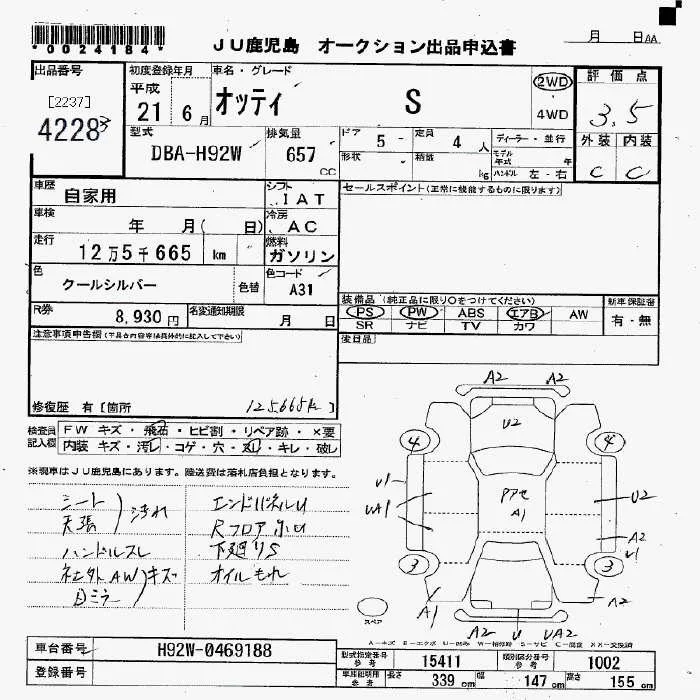 *0024184*
JU鹿児島 オークション出品申込書
月 日AA
出品番号
[2237]
4228
初度登録年月
平成
21 6月
車名・グレード
オッティ S
2WD
4WD
評価点
3.5
外装 内装
C C
型式
DBA-H92W
排気量
657
CC
ドア 5 -
形状
定員 4人
積載 kg
ディーラー・並行
モデル年式 年
ハンドル 左・右
車歴
自家用
シフト
IAT
車検
年 月( 日)
冷房
AC
走行
12万5千665 km
燃料
ガソリン
色
クールシルバー
色替
色コード
A31
R券
8,930円
名変通知期限
月 日
セールスポイント(正常に機能するものに限ります)
装備品(純正品に限り○をつけてください)
PS PW ABS エアB AW
SR ナビ TV カワ
新車保証書
有・無
後日品
注意事項申告欄(不具合内容等は具体的に記入して下さい)
修復歴 有[箇所 125665k]
検査員記入欄
FW キズ・飛石・ヒビ割・リペア跡・×要
内装 キズ・汚レ・コゲ・穴・スレ・キレ・破レ
※現車はJU鹿児島にあります。陸送費は落札店負担となります。
シート
天張
汚れ
ハンドルスレ
社外AWキズ
エンドパネルU
Rフロア小U
下廻りS
オイルもれ
A2 A2
U2
4 4
U1
UA1
Pアセ
A1
U2
A2
U1
3 3
A1
A2
A2 U UA2
スペア
A-キズ
車台番号
H92W-0469188
登録番号
型式指定番号 参考
15411
類別区分番号 参考
1002
長さ 339cm 幅 147cm 高さ 155cm